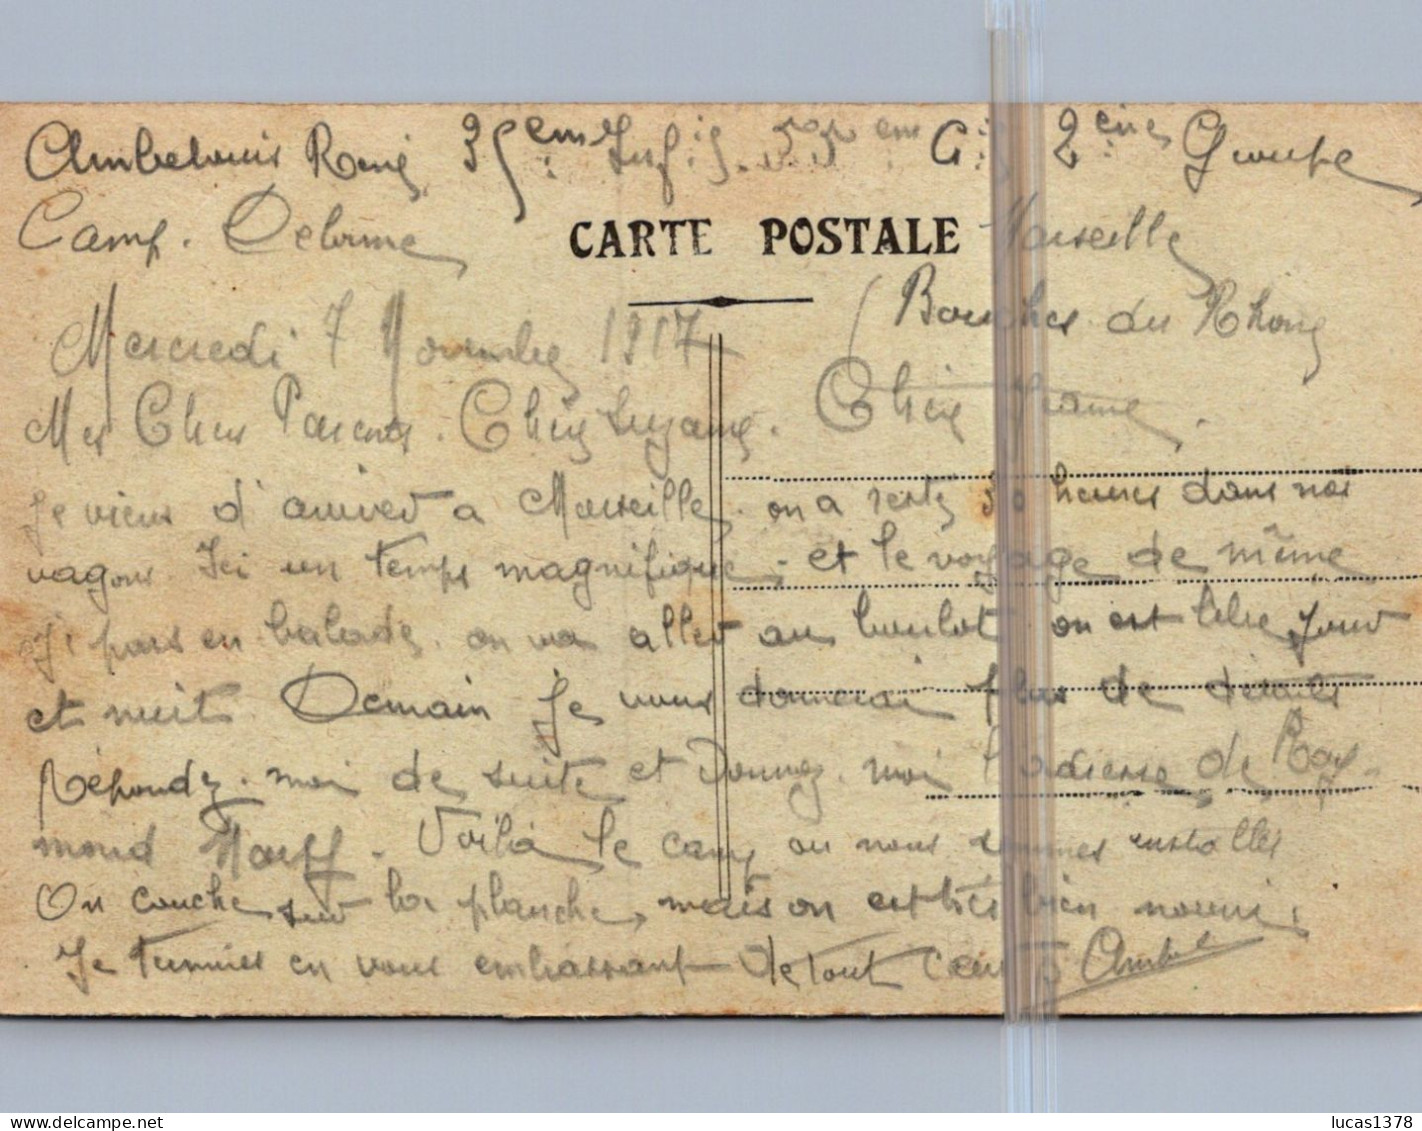 René 35em Inf 55em Cie 2eme Groupe
Camp. Delorme Marseille
CARTE POSTALE
(Bouches du Rhone
Mercredi 7 Novembre 1917
Mes Chers Parents. Chere Suzanne. Chere
Je viens d'arriver a Marseille. on a resté 30 heures dans nos
vagons. Ici un temps magnifique, et le voyage de même
J'i pars en balade, on va aller au boulot on est libre Jour
et nuit. Demain Je vous donnerai plus de details
Répondez-moi de suite et Donnez-moi l'adresse de Ray-
mond. Voilà le camp ou nous sommes installés
On couche sur la planche, mais on est très bien nourri,
Je termine en vous embrassant de tout cœur
delcampe.net
lucas1378